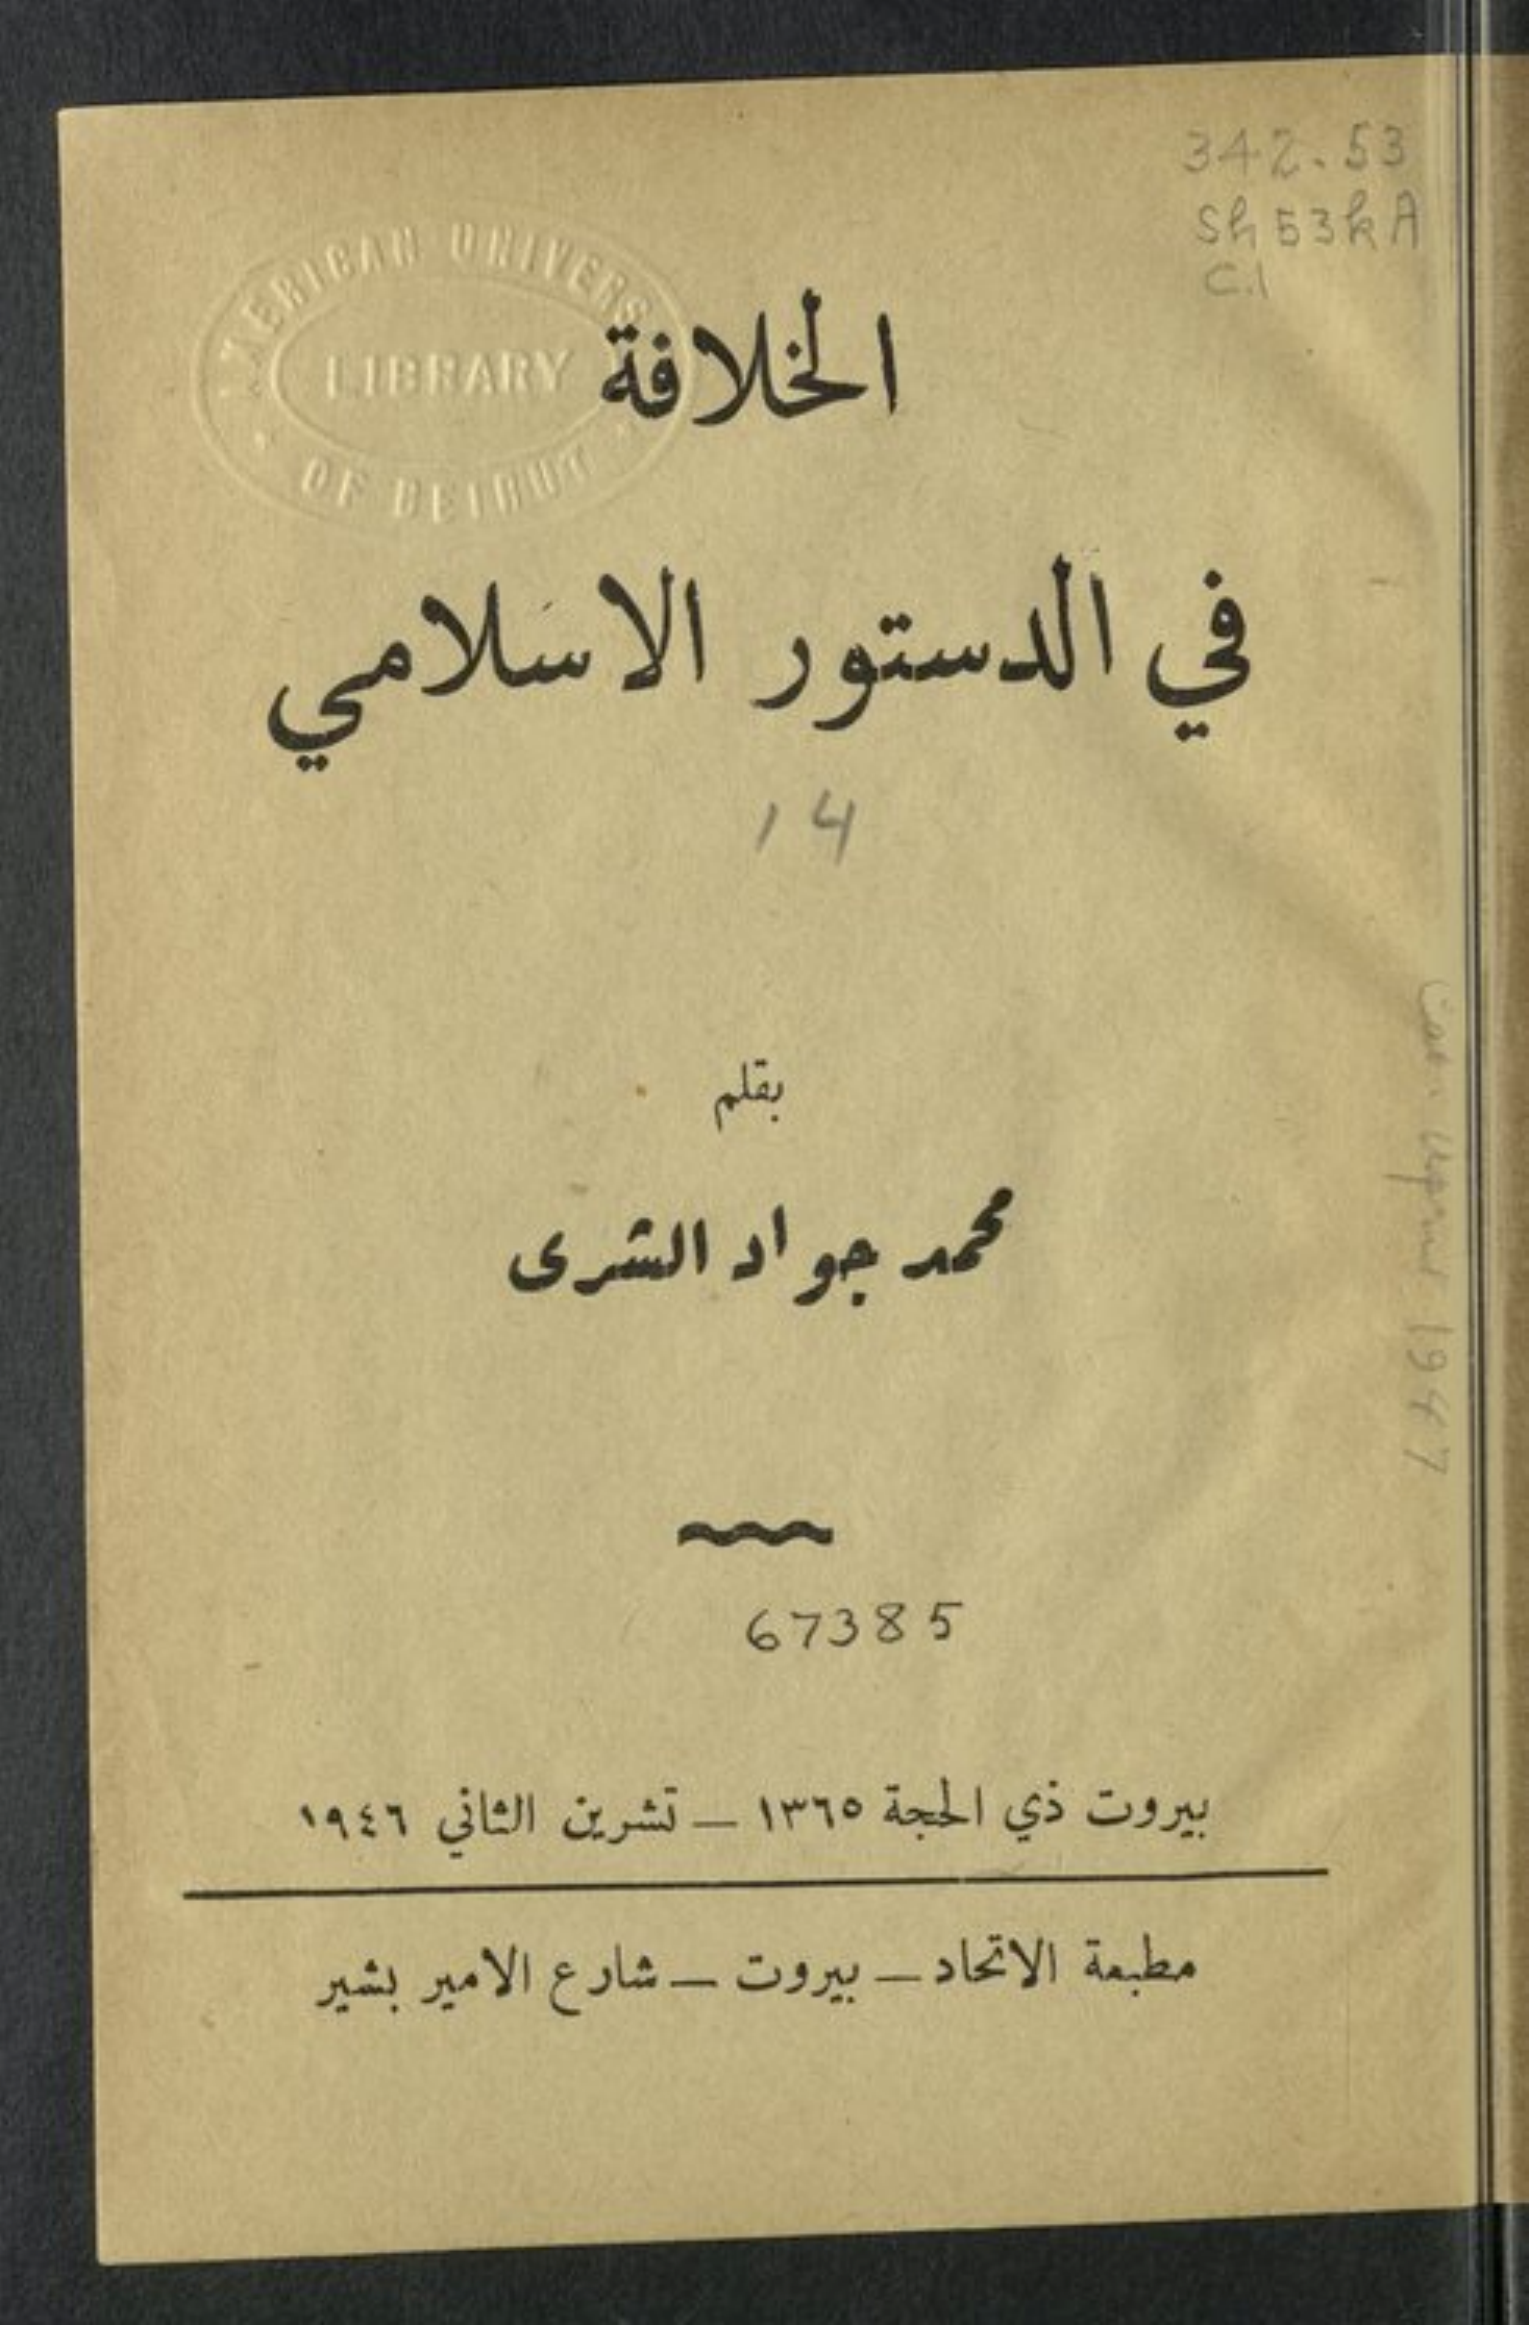 342.53
Sh53kA
C.1
AMERICAN UNIVERS
LIBRARY
OF BEIRUT
الخلافة
في الدستور الاسلامي
14
بقلم
محمد جواد الشرى
67385
بيروت ذي الحجة ١٣٦٥ — تشرين الثاني ١٩٤٦
مطبعة الاتحاد — بيروت — شارع الامير بشير
1947